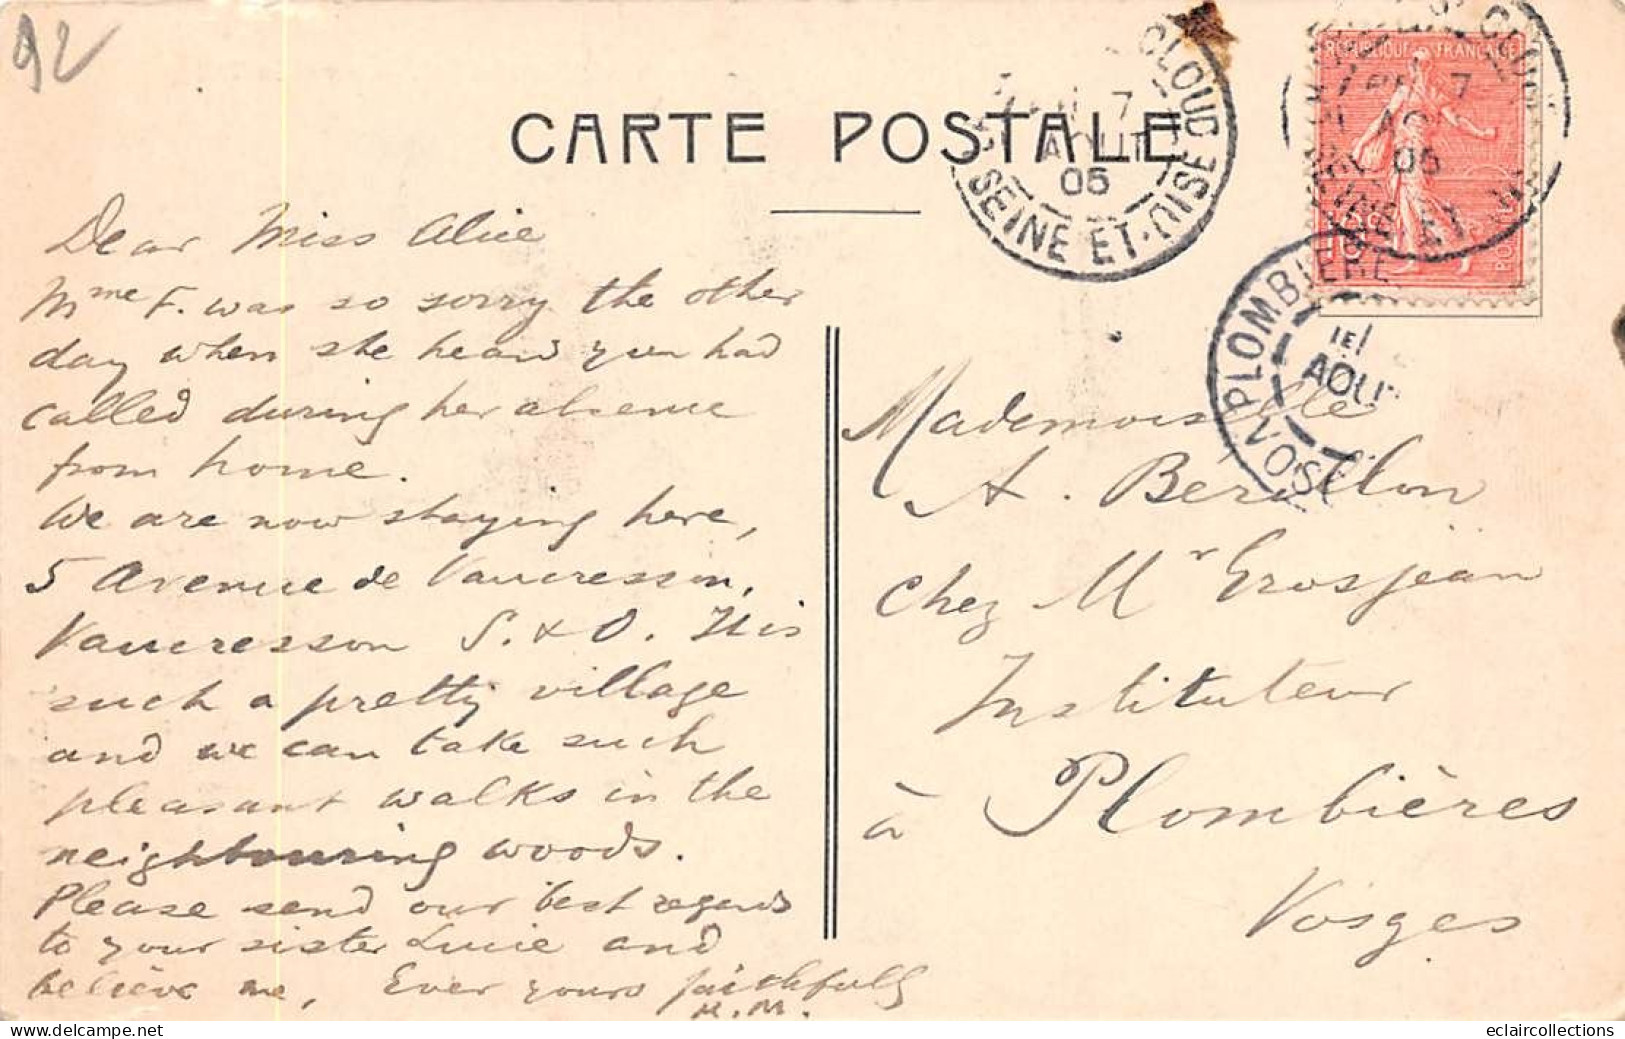 92
CARTE POSTALE
CLOUD
7
AOUT
05
SEINE ET-OISE
REPUBLIQUE FRANÇAISE
7
05
SEINE ET
PLOMBIERE
AOU
VOSG
Dear Miss Alice
Mme F. was so sorry the other
day when she heard you had
called during her absence
from home.
We are now staying here,
5 Avenue de Vaucresson,
Vaucresson S. & O. It is
such a pretty village
and we can take such
pleasant walks in the
neighbouring woods.
Please send our best regards
to your sister Lucie and
believe me, Ever yours faithfully
H.M.
Mademoiselle
A. Berillon
chez Mr Grosjean
Instituteur
à Plombières
Vosges
eclaircollections